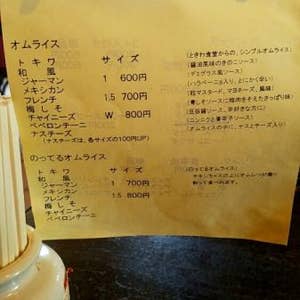 オムライス サイズ
トキワ (ときわ食堂からの、シンプルオムライス)
和風 (醤油風味のきのこソース)
ジャーマン 1 600円 (デミグラス風ソース)
メキシカン (ハラペーニョ入り、とにかく辛い)
フレンチ 1.5 700円 (粒マスタード、マヨネーズ、風味)
梅しそ
チャイニーズ W 800円
ペペロンチーニ (ニンニクと唐辛子ソース)
ナスチーズ (オムライスの中に、ナスとチーズ入り)
(ナスチーズは、各サイズの100円UP)
のってるオムライス
トキワ サイズ (のってるオムライス、
和風
ジャーマン 1 700円
メキシカン
フレンチ 1.5 800円
梅しそ
チャイニーズ
ペペロンチーニ